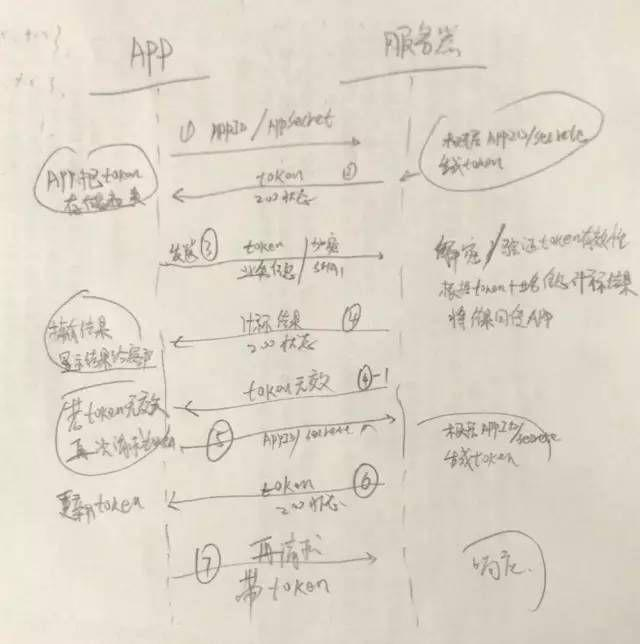 APP
服务器
① APPID/AppSecret
根据APPID/secrete
生成token
APP把token
存储起来
token ②
200状态
发送 ③ token
业务信息/
解密/验证token有效性
根据token+业务信息计算结果
将结果回给APP
计算结果 ④
200状态
结果
显示结果给客户
token无效 ④-1
若token无效
再次请求token
⑤ APPID/secrete
根据APPID/secrete
生成token
token ⑥
200状态
更新token
⑦ 再请求
带token
响应